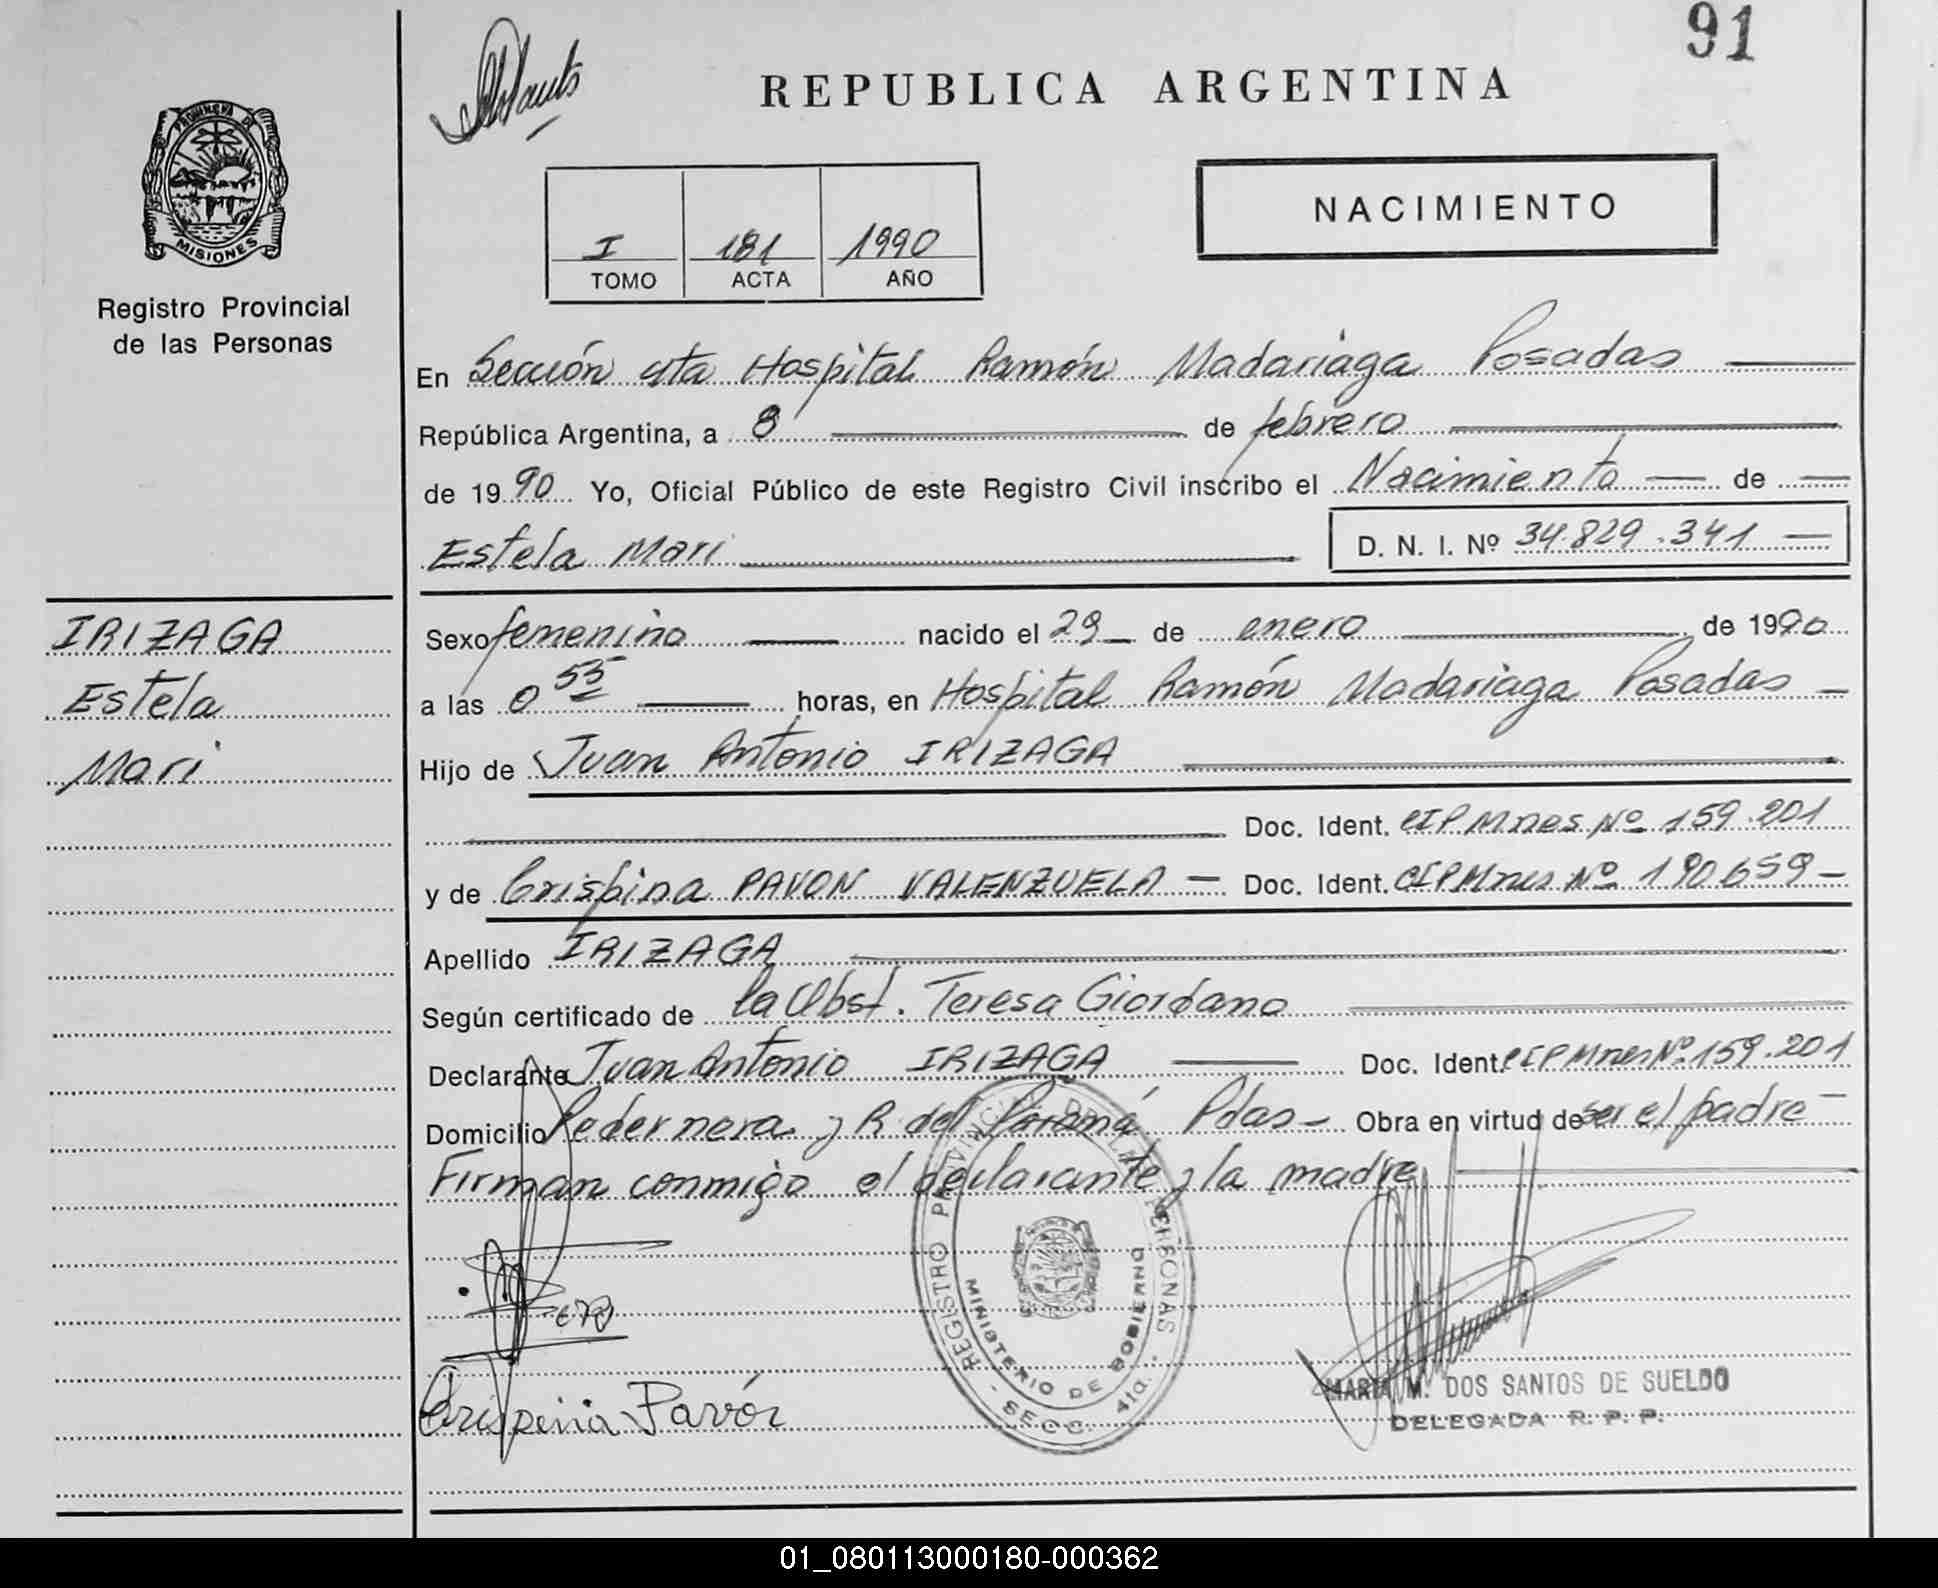 91
REPUBLICA ARGENTINA
PROVINCIA DE
MISIONES
Registro Provincial
de las Personas
NACIMIENTO
I 181 1990
TOMO ACTA AÑO
En Sección 4ta Hospital Ramón Madariaga Posadas
República Argentina, a 8 de febrero
de 1990 Yo, Oficial Público de este Registro Civil inscribo el Nacimiento de
Estela Mari D. N. I. Nº 34.829.341
IRIZAGA
Estela
Mari
Sexo femenino nacido el 29 de enero de 1990
a las 0 55 horas, en Hospital Ramón Madariaga Posadas
Hijo de Juan Antonio IRIZAGA
Doc. Ident. CIPMnes Nº 159.201
y de Crispina PAVON VALENZUELA Doc. Ident. CIPMnes Nº 190.659
Apellido IRIZAGA
Según certificado de la Obst. Teresa Giordano
Declarante Juan Antonio IRIZAGA Doc. Ident. CIPMnes Nº 159.201
Domicilio Pedernera y R. del Paraná Pdas Obra en virtud de ser el padre
Firman conmigo el declarante y la madre
REGISTRO PROVINCIAL DE LAS PERSONAS
MINISTERIO DE GOBIERNO
- SECC. 4ta. -
Crispina Pavón
MARIA M. DOS SANTOS DE SUELDO
DELEGADA R. P. P.
01_080113000180-000362